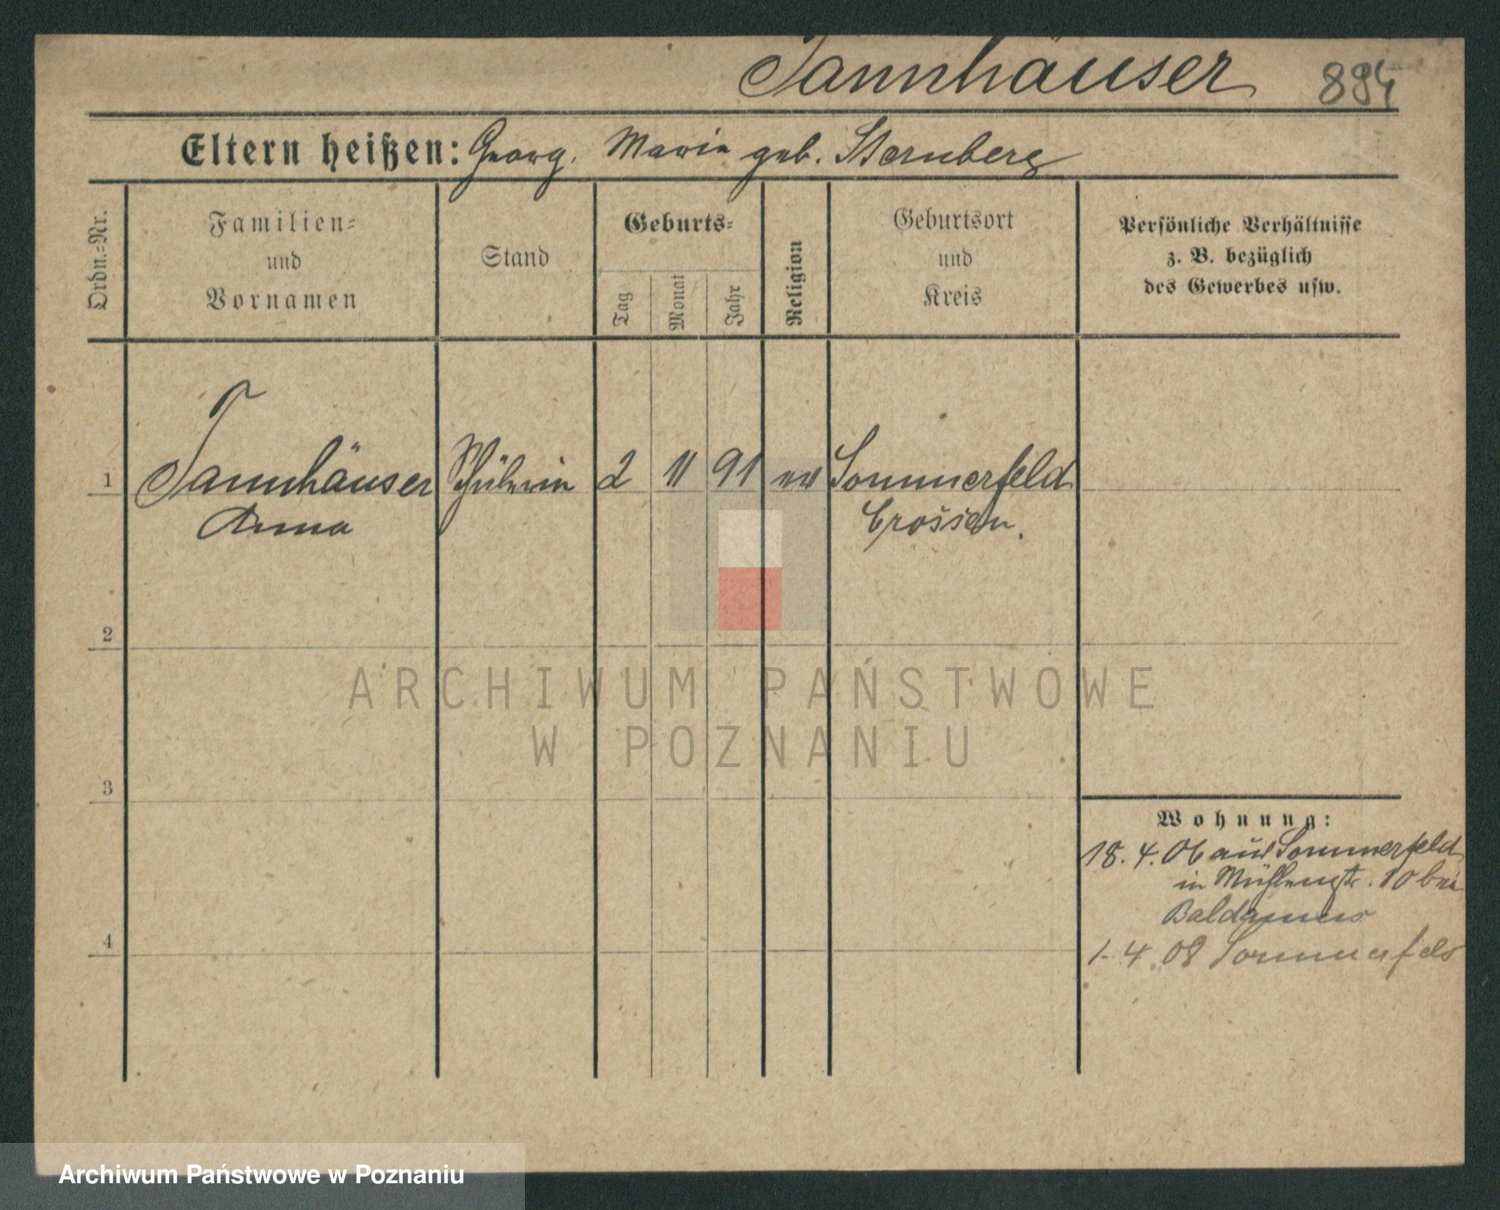 Tannhäuser 894
Eltern heißen: Georg. Marie geb. Sternberg
Ordn.=Nr.
Familien=
und
Vornamen
Stand
Geburts=
Tag
Monat
Jahr
Religion
Geburtsort
und
Kreis
Persönliche Verhältnisse
z. B. bezüglich
des Gewerbes usw.
1 Tannhäuser Schülerin 2 11 91 ev Sommerfeld
Anna Crossen.
2
3
4
Wohnung:
18. 4. 06 aus Sommerfeld
in Mühlenstr. 10 bei
Baldamus
1. 4. 08 Sommerfeld
ARCHIWUM PAŃSTWOWE
W POZNANIU
Archiwum Państwowe w Poznaniu